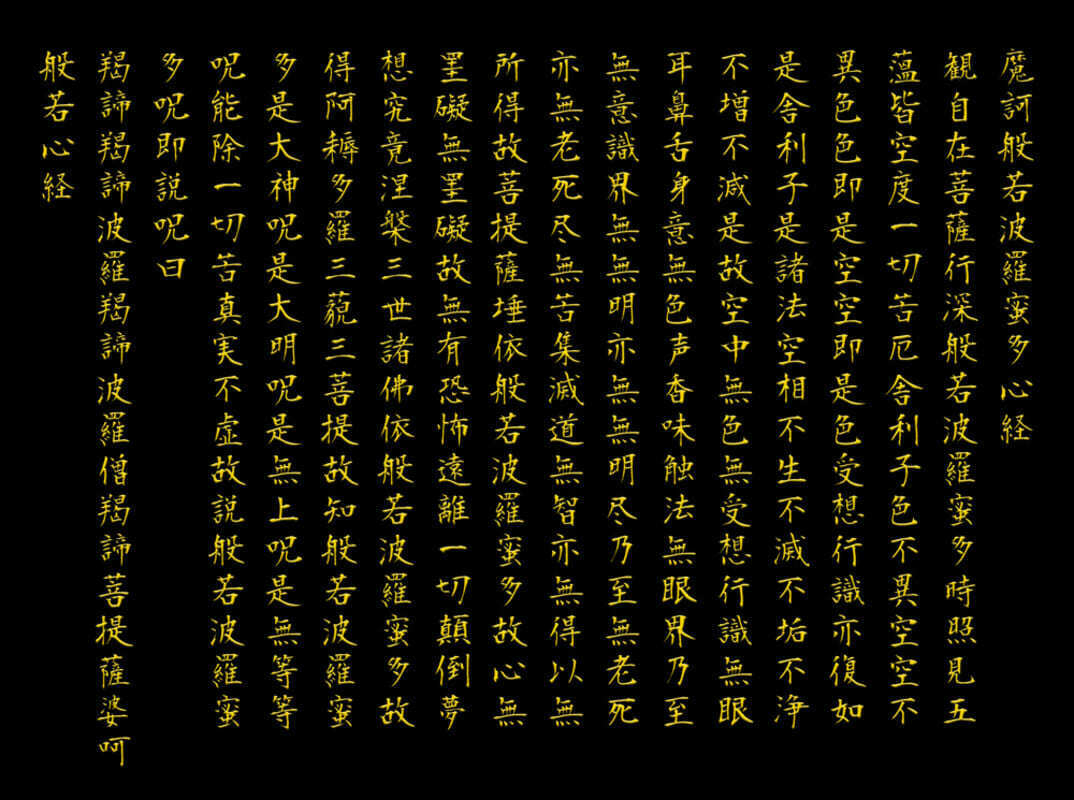 魔訶般若波羅蜜多心経
観自在菩薩行深般若波羅蜜多時照見五
薀皆空度一切苦厄舎利子色不異空空不
異色色即是空空即是色受想行識亦復如
是舎利子是諸法空相不生不滅不垢不浄
不増不減是故空中無色無受想行識無眼
耳鼻舌身意無色声香味触法無眼界乃至
無意識界無無明亦無無明尽乃至無老死
亦無老死尽無苦集滅道無智亦無得以無
所得故菩提薩埵依般若波羅蜜多故心無
罣礙無罣礙故無有恐怖遠離一切顛倒夢
想究竟涅槃三世諸佛依般若波羅蜜多故
得阿耨多羅三藐三菩提故知般若波羅蜜
多是大神呪是大明呪是無上呪是無等等
呪能除一切苦真実不虚故説般若波羅蜜
多呪即説呪曰
羯諦羯諦波羅羯諦波羅僧羯諦菩提薩婆呵
般若心経